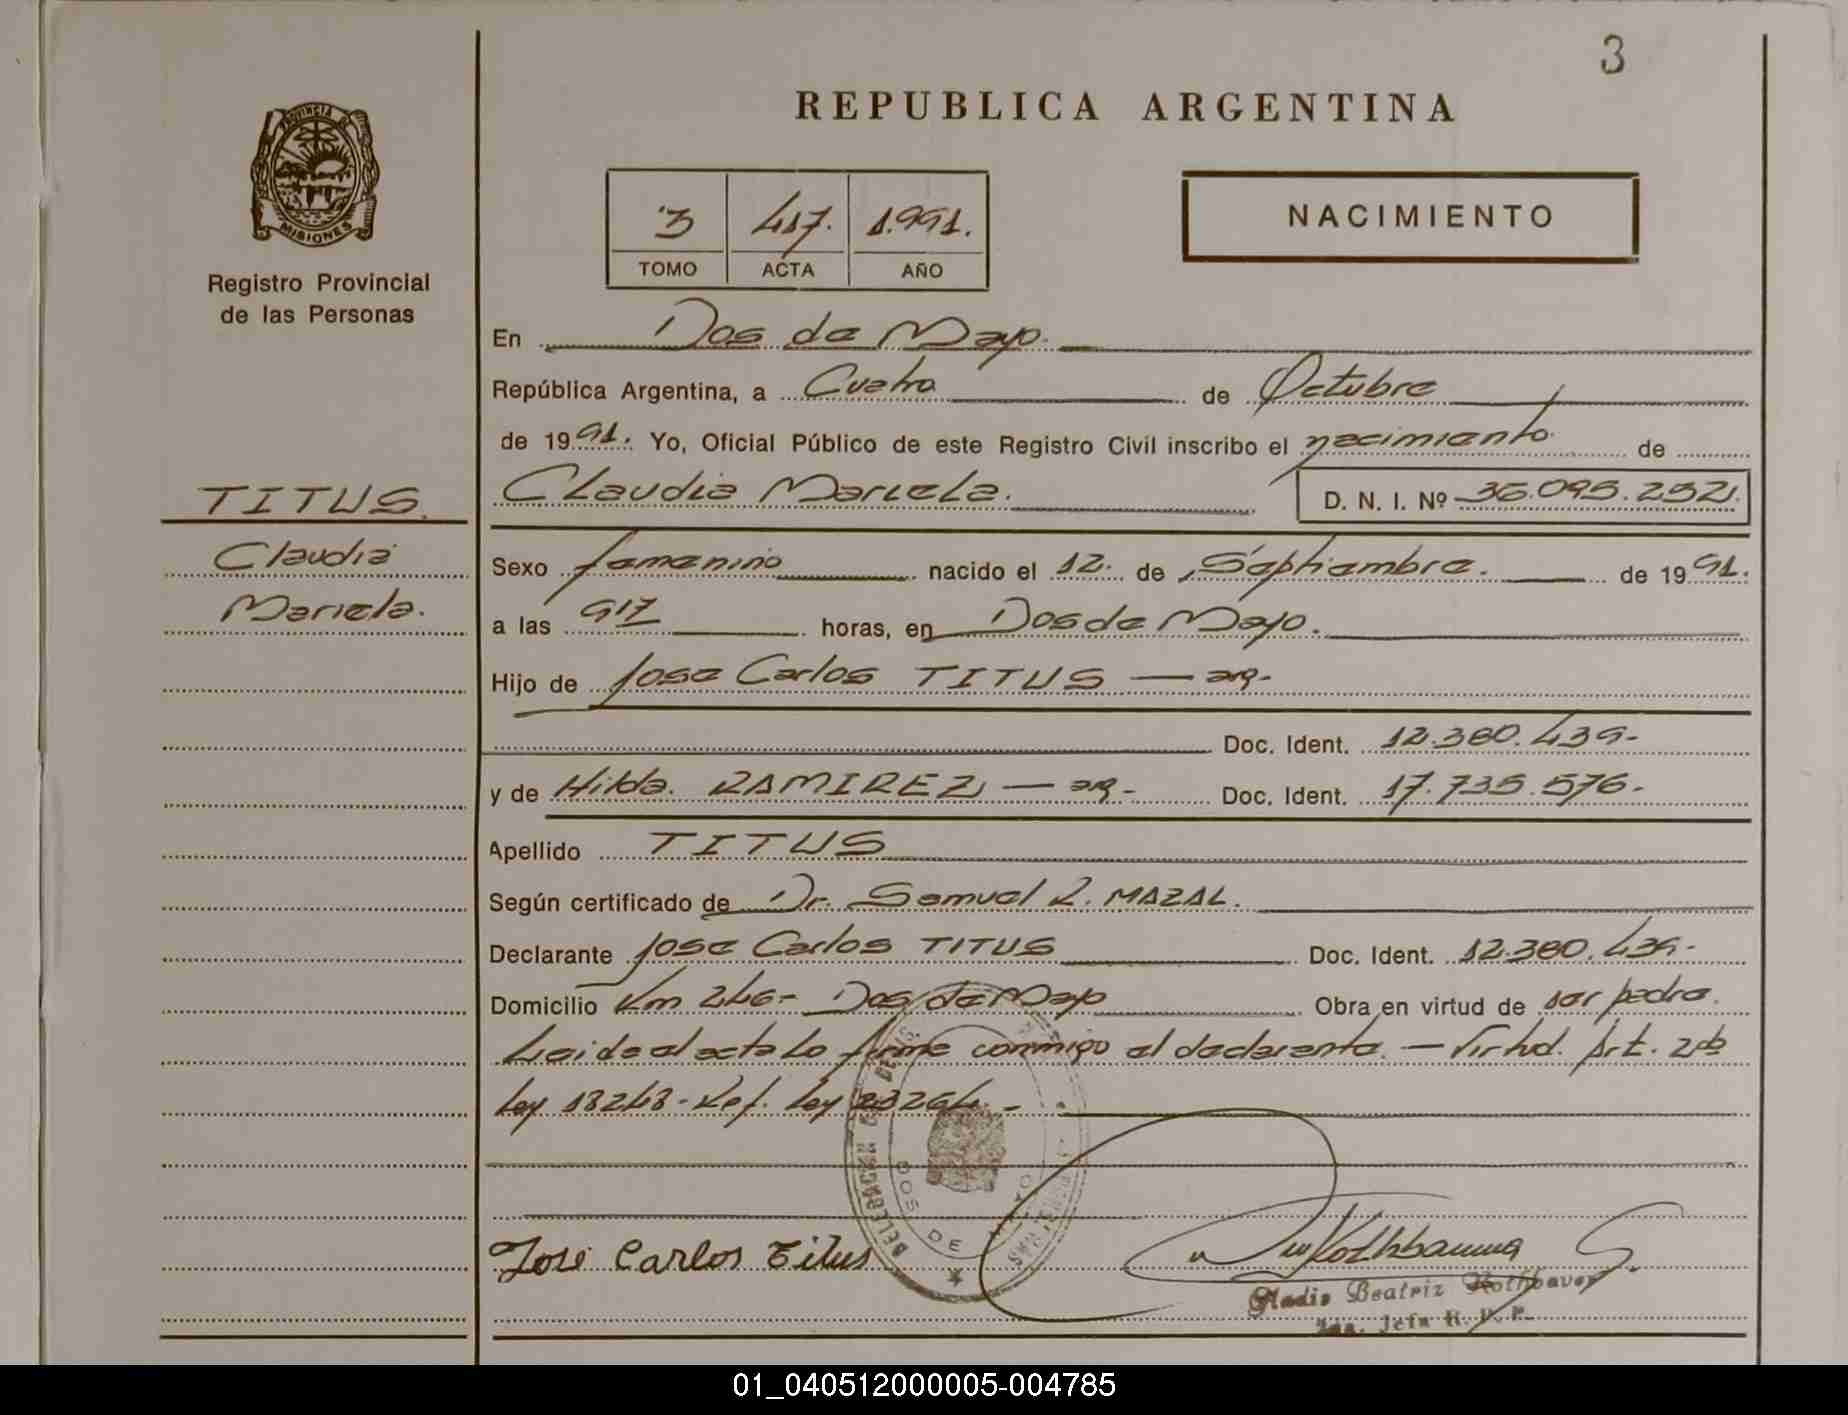 3
REPUBLICA ARGENTINA
PROVINCIA DE
MISIONES
Registro Provincial
de las Personas
3 417. 1.991.
TOMO ACTA AÑO
NACIMIENTO
En Dos de Mayo.
República Argentina, a Cuatro de Octubre
de 1991. Yo, Oficial Público de este Registro Civil inscribo el nacimiento de
TITUS.
Claudia Mariela. D. N. I. Nº 36.095.252.
Claudia
Sexo femenino nacido el 12. de Septiembre. de 1991.
Mariela.
a las 9 17 horas, en Dos de Mayo.
Hijo de Jose Carlos TITUS — arg.
Doc. Ident. 12.380.439-
y de Hilda. RAMIREZ — arg- Doc. Ident. 17.735.576-
Apellido TITUS
Según certificado de Dr. Samuel R. MAZAL.
Declarante Jose Carlos TITUS Doc. Ident. 12.380.439-
Domicilio Km 246- Dos de Mayo Obra en virtud de ser padre.
Leida el acta lo firma conmigo el declarante. — Virtud. Art. 2do
Ley 18248- Ref. Ley 23264. -
DOS DE MAYO
José Carlos Titus
Gladis Beatriz Rothbauer
Jefa R. P. P.
01_040512000005-004785